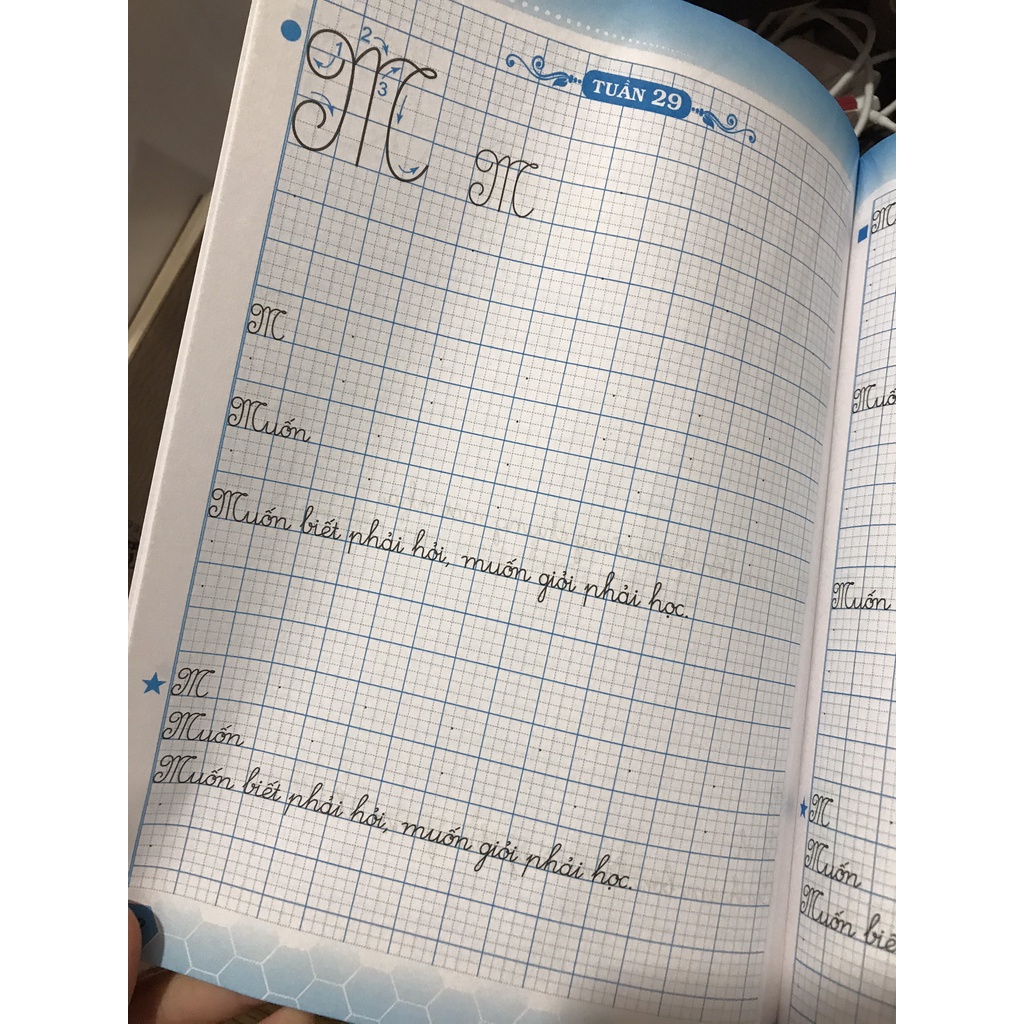 TUẦN 29
1 2 3
M M
M
Muốn
Muốn biết phải hỏi, muốn giỏi phải học.
M
Muốn
Muốn biết phải hỏi, muốn giỏi phải học.
M
Muốn
M
Muốn
Muốn